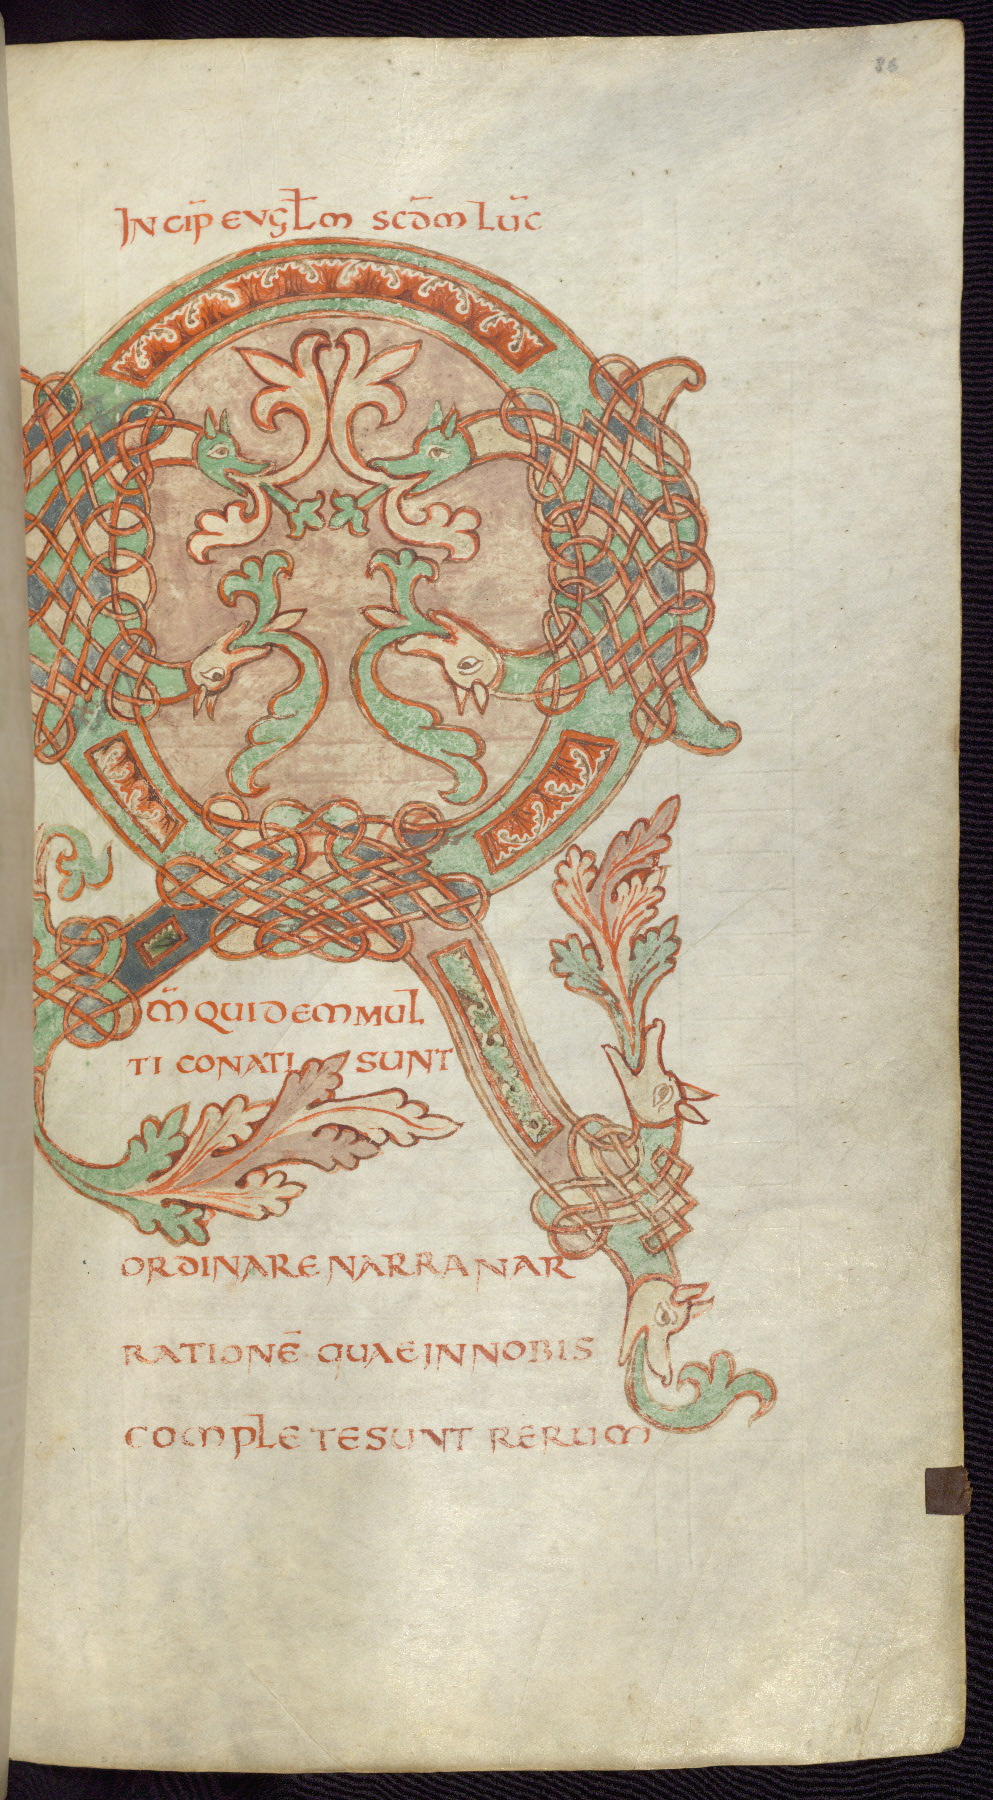 86
INCIP̄ EVGL̄M SCD̄M LŪC
Q
M̄ QUIDEM MUL
TI CONATI SUNT
ORDINARE NARRANAR
RATIONĒ QUAE IN NOBIS
COMPLETE SUNT RERUM